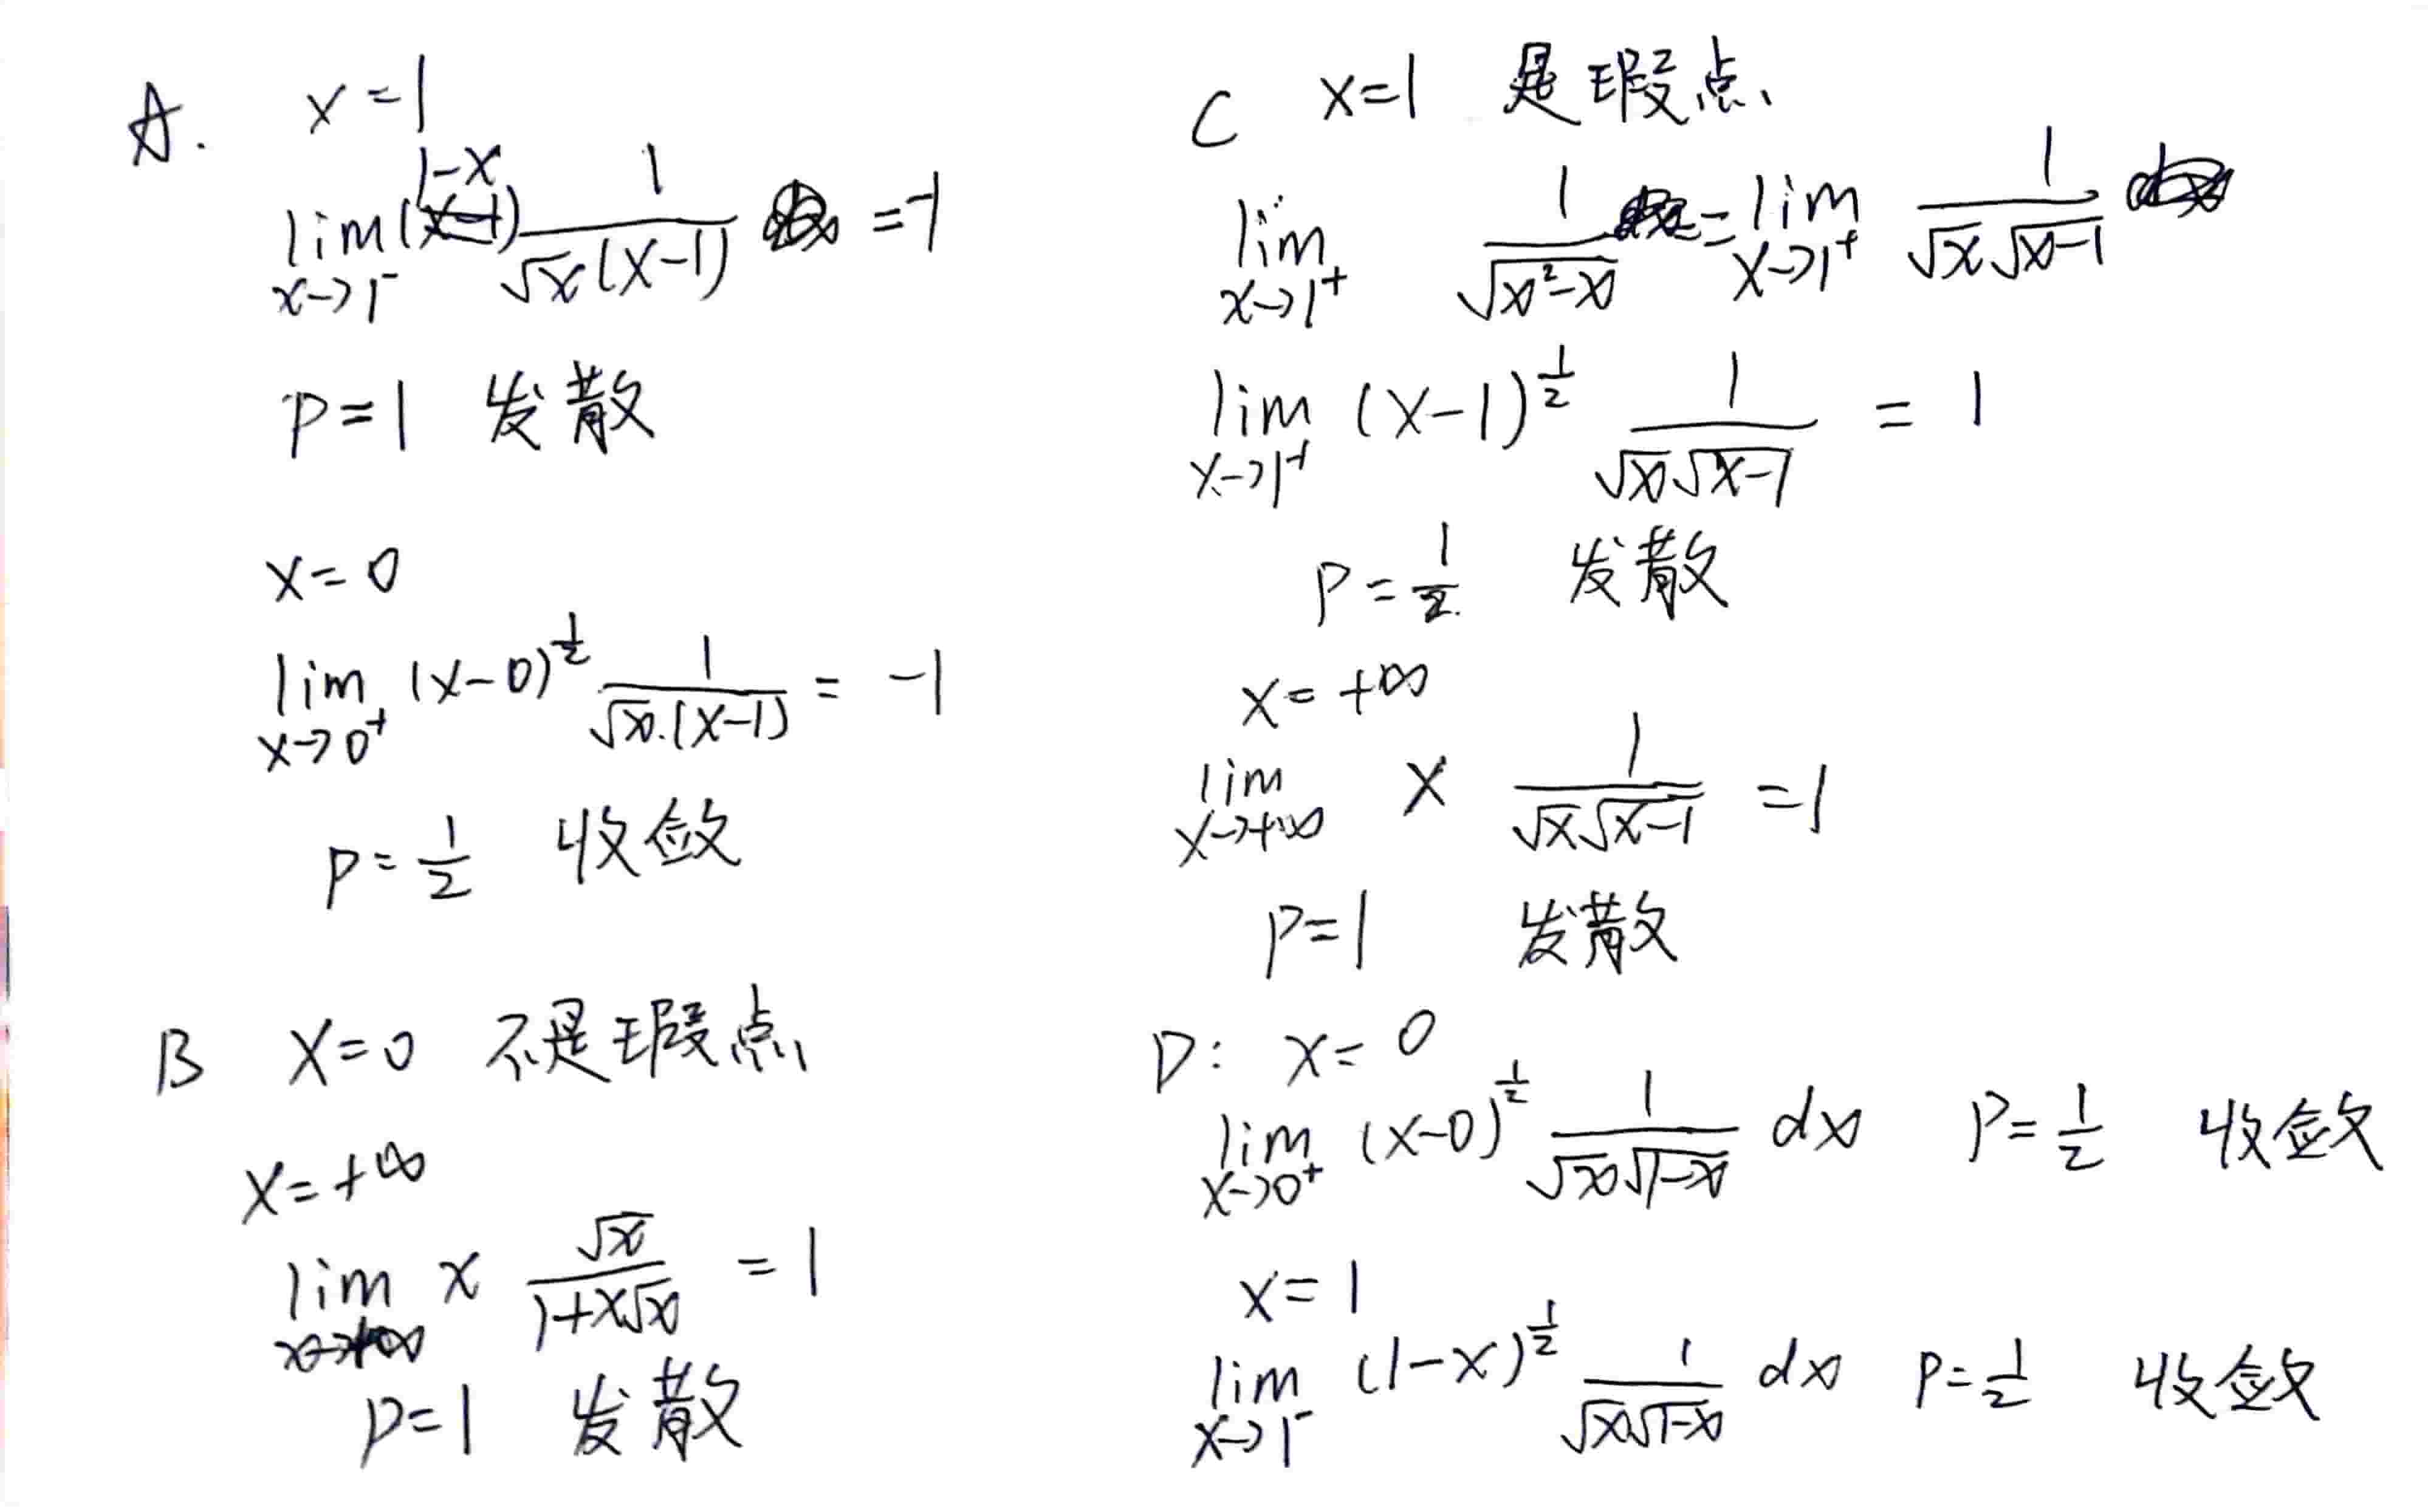 A. x=1
lim x→1⁻ (1-x) 1/(√x(x-1)) =-1
P=1 发散
x=0
lim x→0⁺ (x-0)^(1/2) 1/(√x·(x-1)) = -1
P=1/2 收敛
B x=0 不是瑕点
x=+∞
lim x→+∞ x √x/(1+x√x) =1
P=1 发散
C x=1 是瑕点
lim x→1⁺ 1/√(x²-x) = lim x→1⁺ 1/(√x√(x-1))
lim x→1⁺ (x-1)^(1/2) 1/(√x√(x-1)) = 1
P=1/2 发散
x=+∞
lim x→+∞ x 1/(√x√(x-1)) =1
P=1 发散
D: x=0
lim x→0⁺ (x-0)^(1/2) 1/(√x√(1-x)) dx P=1/2 收敛
x=1
lim x→1⁻ (1-x)^(1/2) 1/(√x√(1-x)) dx P=1/2 收敛